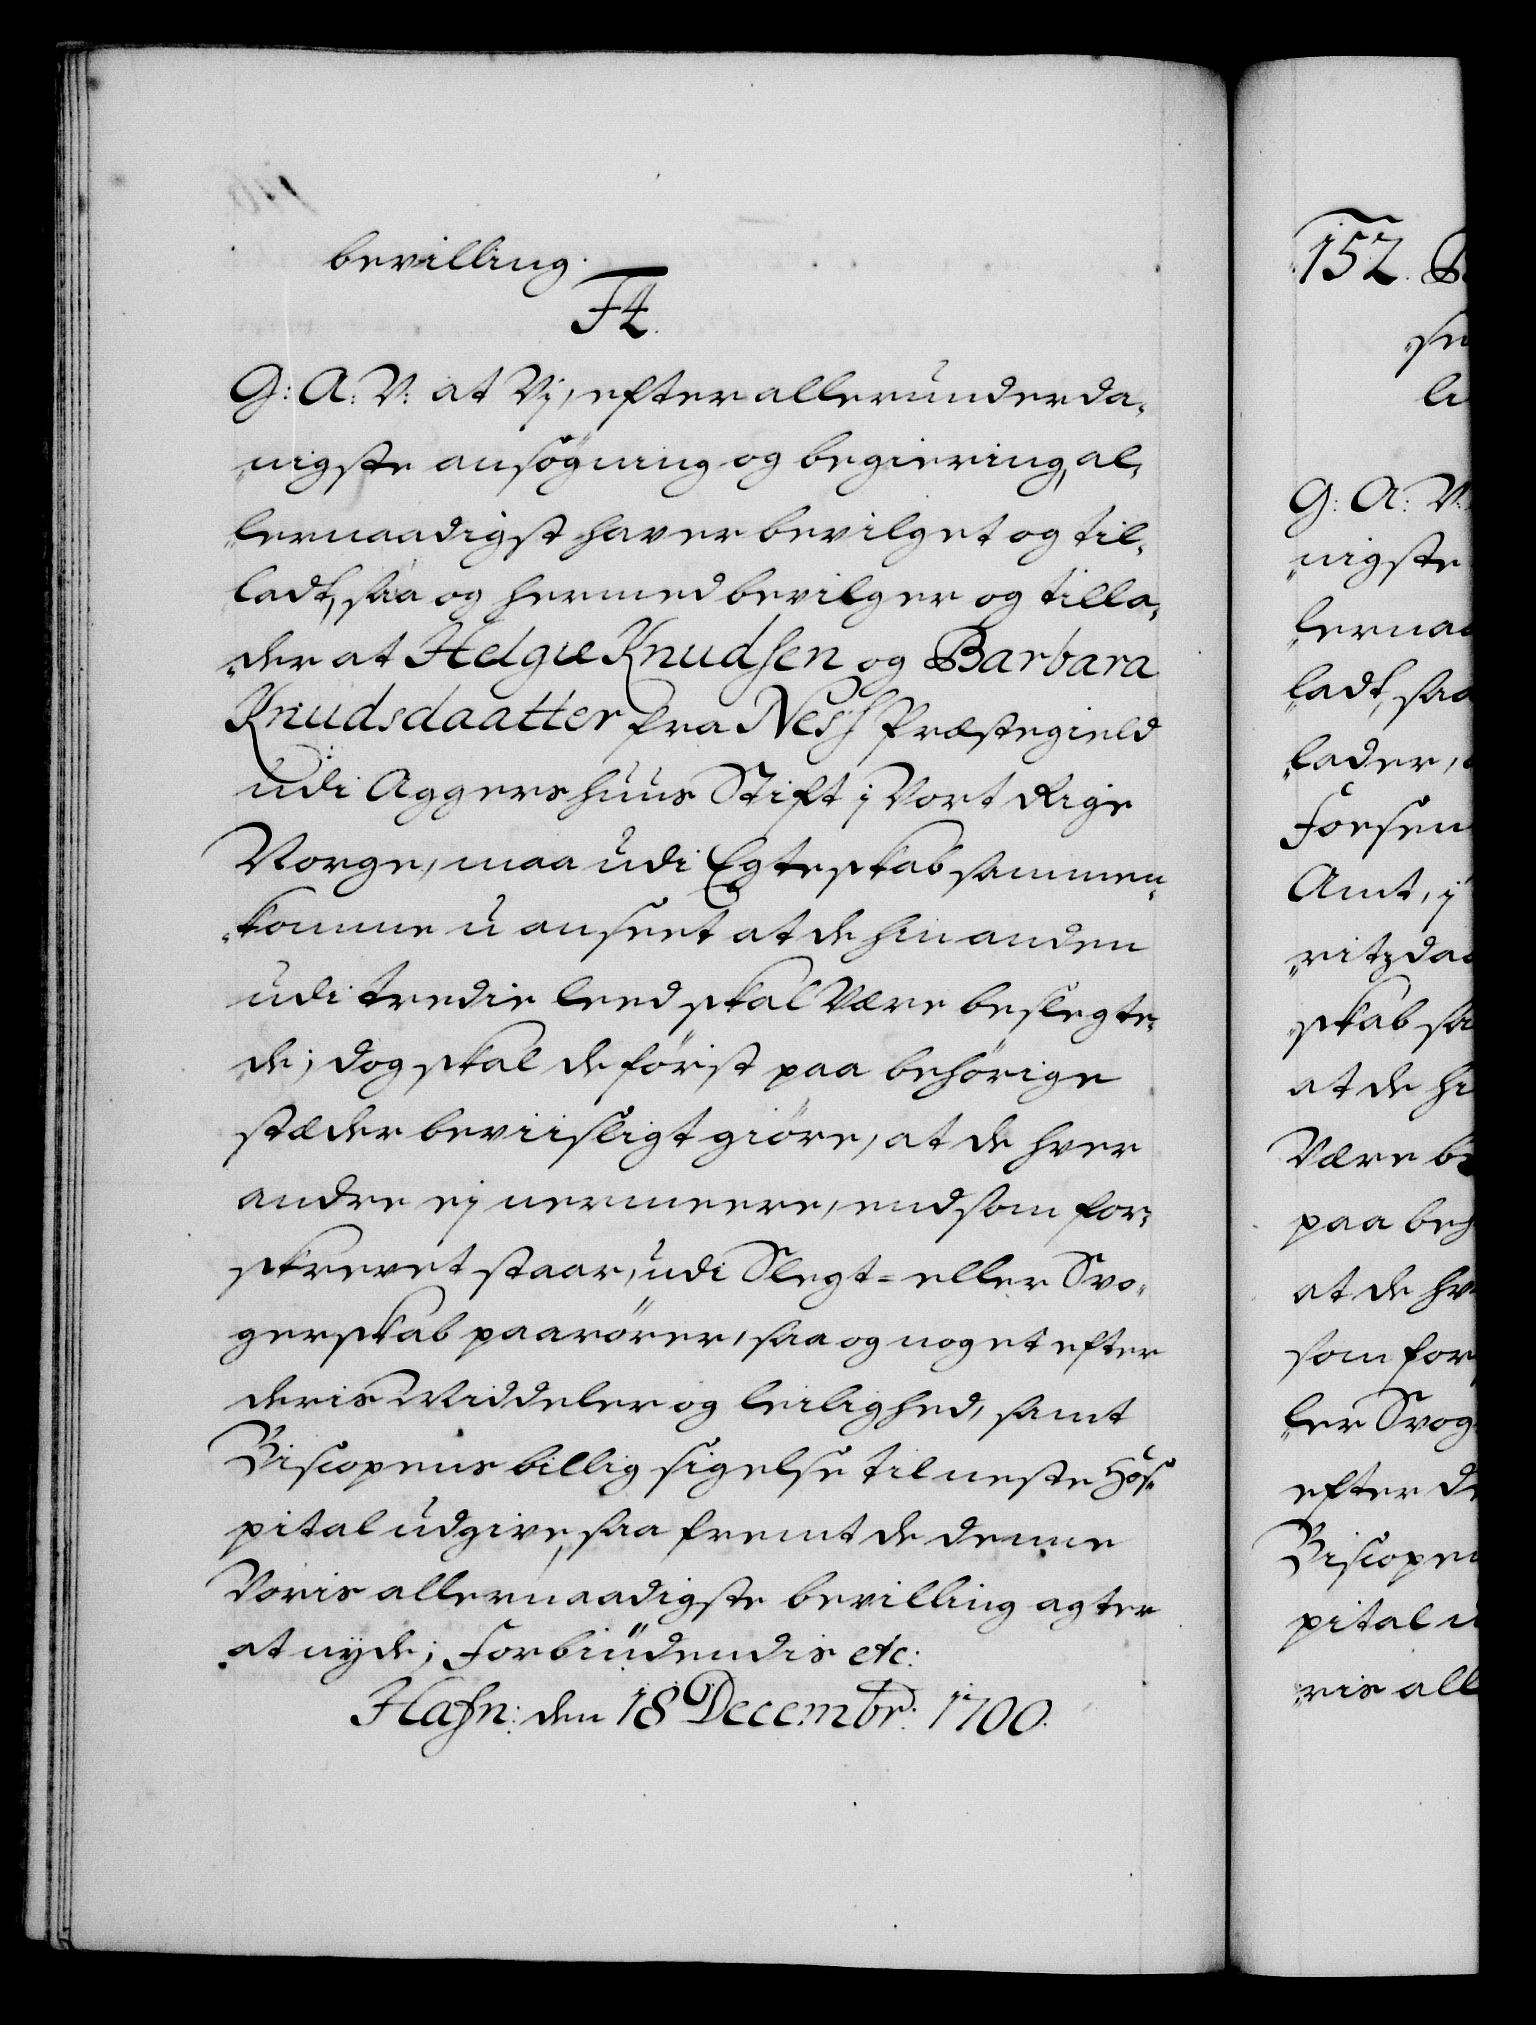 bevilling.
F4.
G: A: V: at Vj, efter allerunderda„
„nigste ansøgning og begiering, al„
„lernaadigst haver bevilget og til„
„ladt, saa og hermed bevilger og tilla„
„der at Helgie Knudsen og Barbara
Knudsdaatter fra Ness Præstegield
udi Aggershuus Stift j Vort Rige
Norge, maa udi Egteskab sammen„
„komme uanseet at de hin anden
udi tredie leed skal være beslegte„
„de; dog skal de først paa behørige
stæder beviisligt giøre, at de hver
andre ej nermeere, end som for„
skrevet staar, udi Slegt= eller Svo„
gerskab paarører, saa og noget efter
deris Middeler og leilighed, samt
Biscopens billig sigelse til neste Hos„
pital udgive, saa fremt de denne
Voris allernaadigste bevilling agter
at nyde; Forbiudendis etc:
Hafn: den 18 Decembr: 1700.
152.
G: A: V:
„nigste
„lernaa
„ladt, saa
„lader,
Forsen
Amt, j
„ritzdaa
„skab sa
at de hi
være be
paa beh
at de hv
som for
„ler Svog
efter de
Biscopen
pital u
„ris all